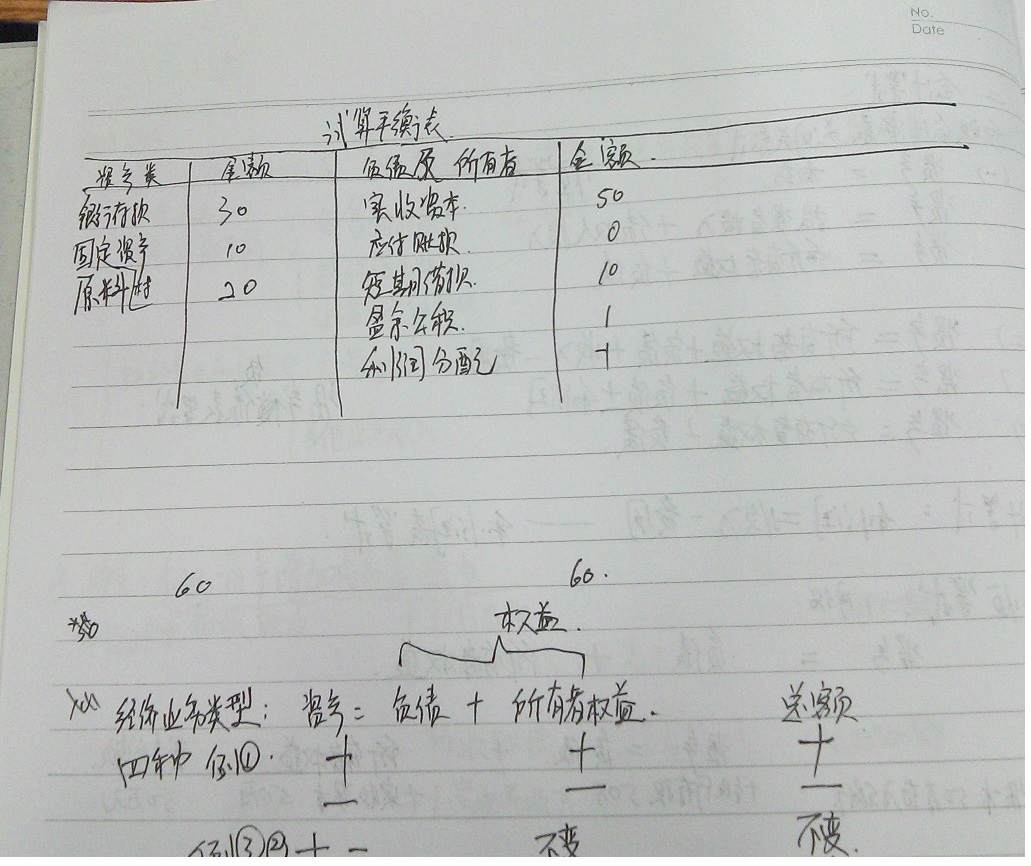 No.
Date
试算平衡表
资产类 金额 负债及所有者 金额.
银行存款 30 实收资本. 50
固定资产 10 应付账款. 0
原材料 20 短期借款. 10
盈余公积. 1
利润分配
60 60.
权益.
经济业务类型: 资产 = 负债 + 所有者权益. 总额
四种 例①. + + +
— — —
例③② + - 不变 不变.